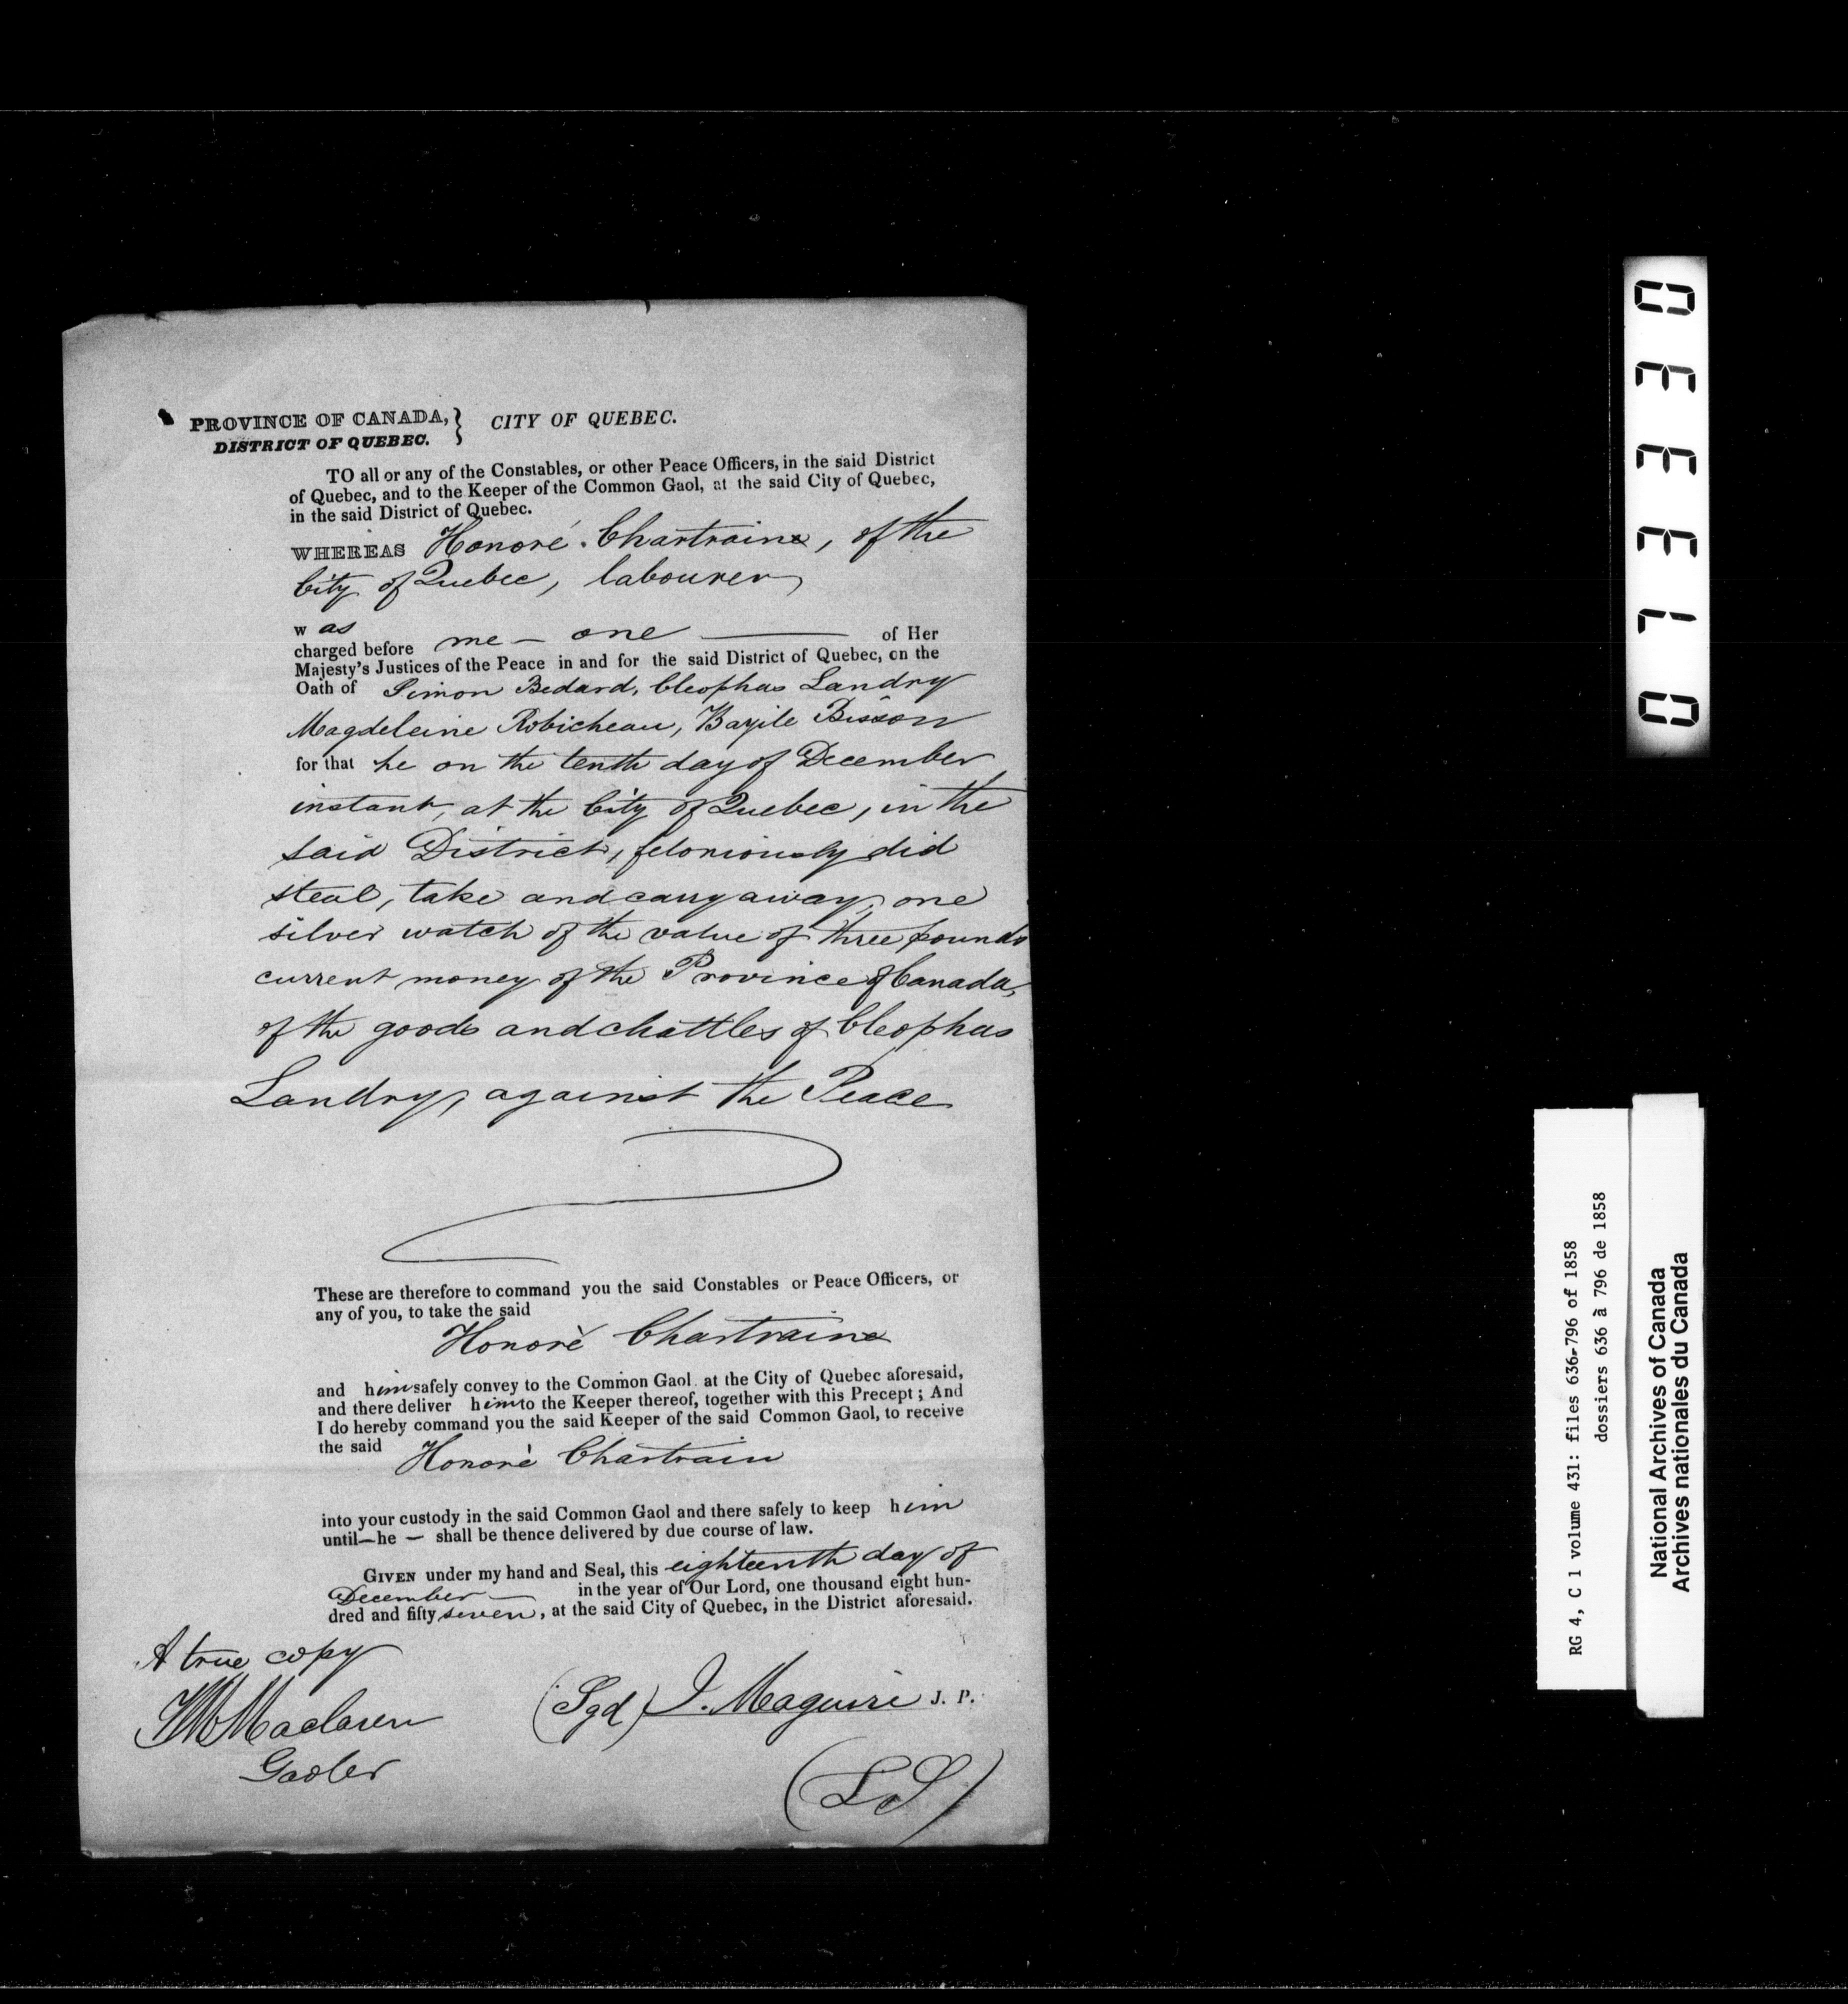 PROVINCE OF CANADA, } CITY OF QUEBEC.
DISTRICT OF QUEBEC.
TO all or any of the Constables, or other Peace Officers, in the said District
of Quebec, and to the Keeper of the Common Gaol, at the said City of Quebec,
in the said District of Quebec.
WHEREAS Honoré Chartraine, of the
City of Quebec, labourer,
was
charged before me — one — of Her
Majesty's Justices of the Peace in and for the said District of Quebec, on the
Oath of Simon Bedard, Cleophas Landry
Magdeleine Robicheau, Bazile Bisson
for that he on the tenth day of December
instant, at the City of Quebec, in the
said District, feloniously did
steal, take and carry away, one
silver watch of the value of three pounds
current money of the Province of Canada,
of the goods and chattles of Cleophas
Landry, against the Peace
These are therefore to command you the said Constables or Peace Officers, or
any of you, to take the said
Honoré Chartraine
and him safely convey to the Common Gaol at the City of Quebec aforesaid,
and there deliver him to the Keeper thereof, together with this Precept; And
I do hereby command you the said Keeper of the said Common Gaol, to receive
the said Honoré Chartrain
into your custody in the said Common Gaol and there safely to keep him
until — he — shall be thence delivered by due course of law.
GIVEN under my hand and Seal, this eighteenth day of
December — in the year of Our Lord, one thousand eight hun-
dred and fifty seven, at the said City of Quebec, in the District aforesaid.
A true copy
(Sgd) J. Maguire J. P.
Maclaren
Gaoler
(LS)
073330
RG 4, C 1 volume 431: files 636-796 of 1858
dossiers 636 à 796 de 1858
National Archives of Canada
Archives nationales du Canada